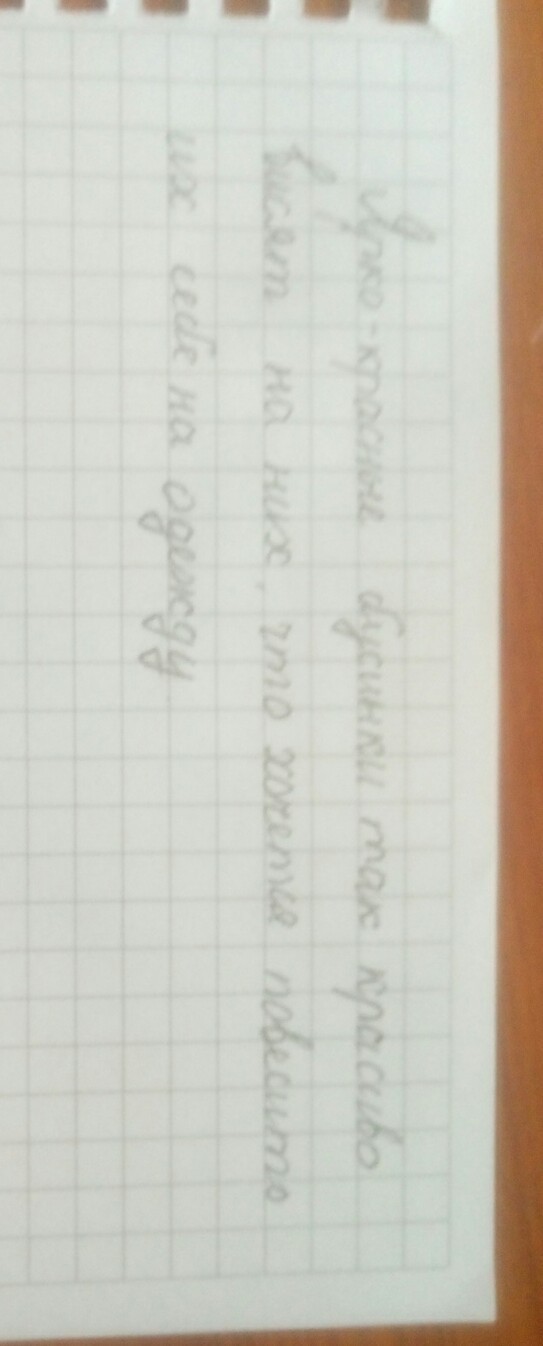 Ярко-красные бусинки так красиво
висят на них, что хочется повесить
их себе на одежду